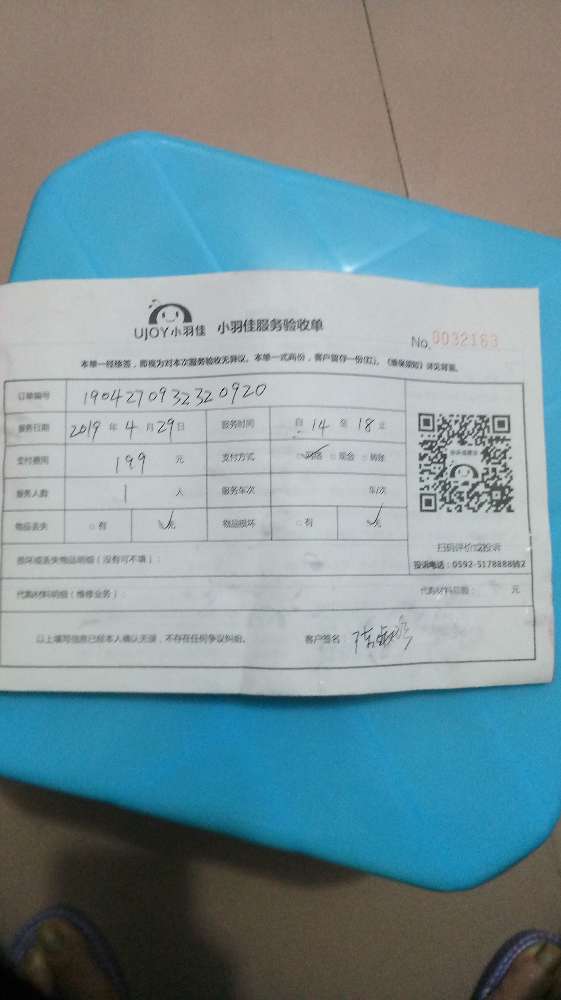 UJOY小羽佳 小羽佳服务验收单
No. 0032163
本单一经签签，即视为对本次服务验收无异议。本单一式两份，客户留存一份(红)。《维保须知》详见背面。
订单编号 1904270932320920
服务日期 2019 年 4 月 29 日 服务时间 自 14 至 18 止
支付费用 199 元 支付方式 网络 现金 转账
服务人数 1 人 服务车次 车/次
物品丢失 有 无 物品损坏 有 无
扫码评价或投诉
投诉电话：0592-5178888转2
损坏或丢失物品明细（没有可不填）：
代购材料明细（维修业务）： 代购材料总额： 元
以上填写信息已经本人确认无误，不存在任何争议纠纷。 客户签名：